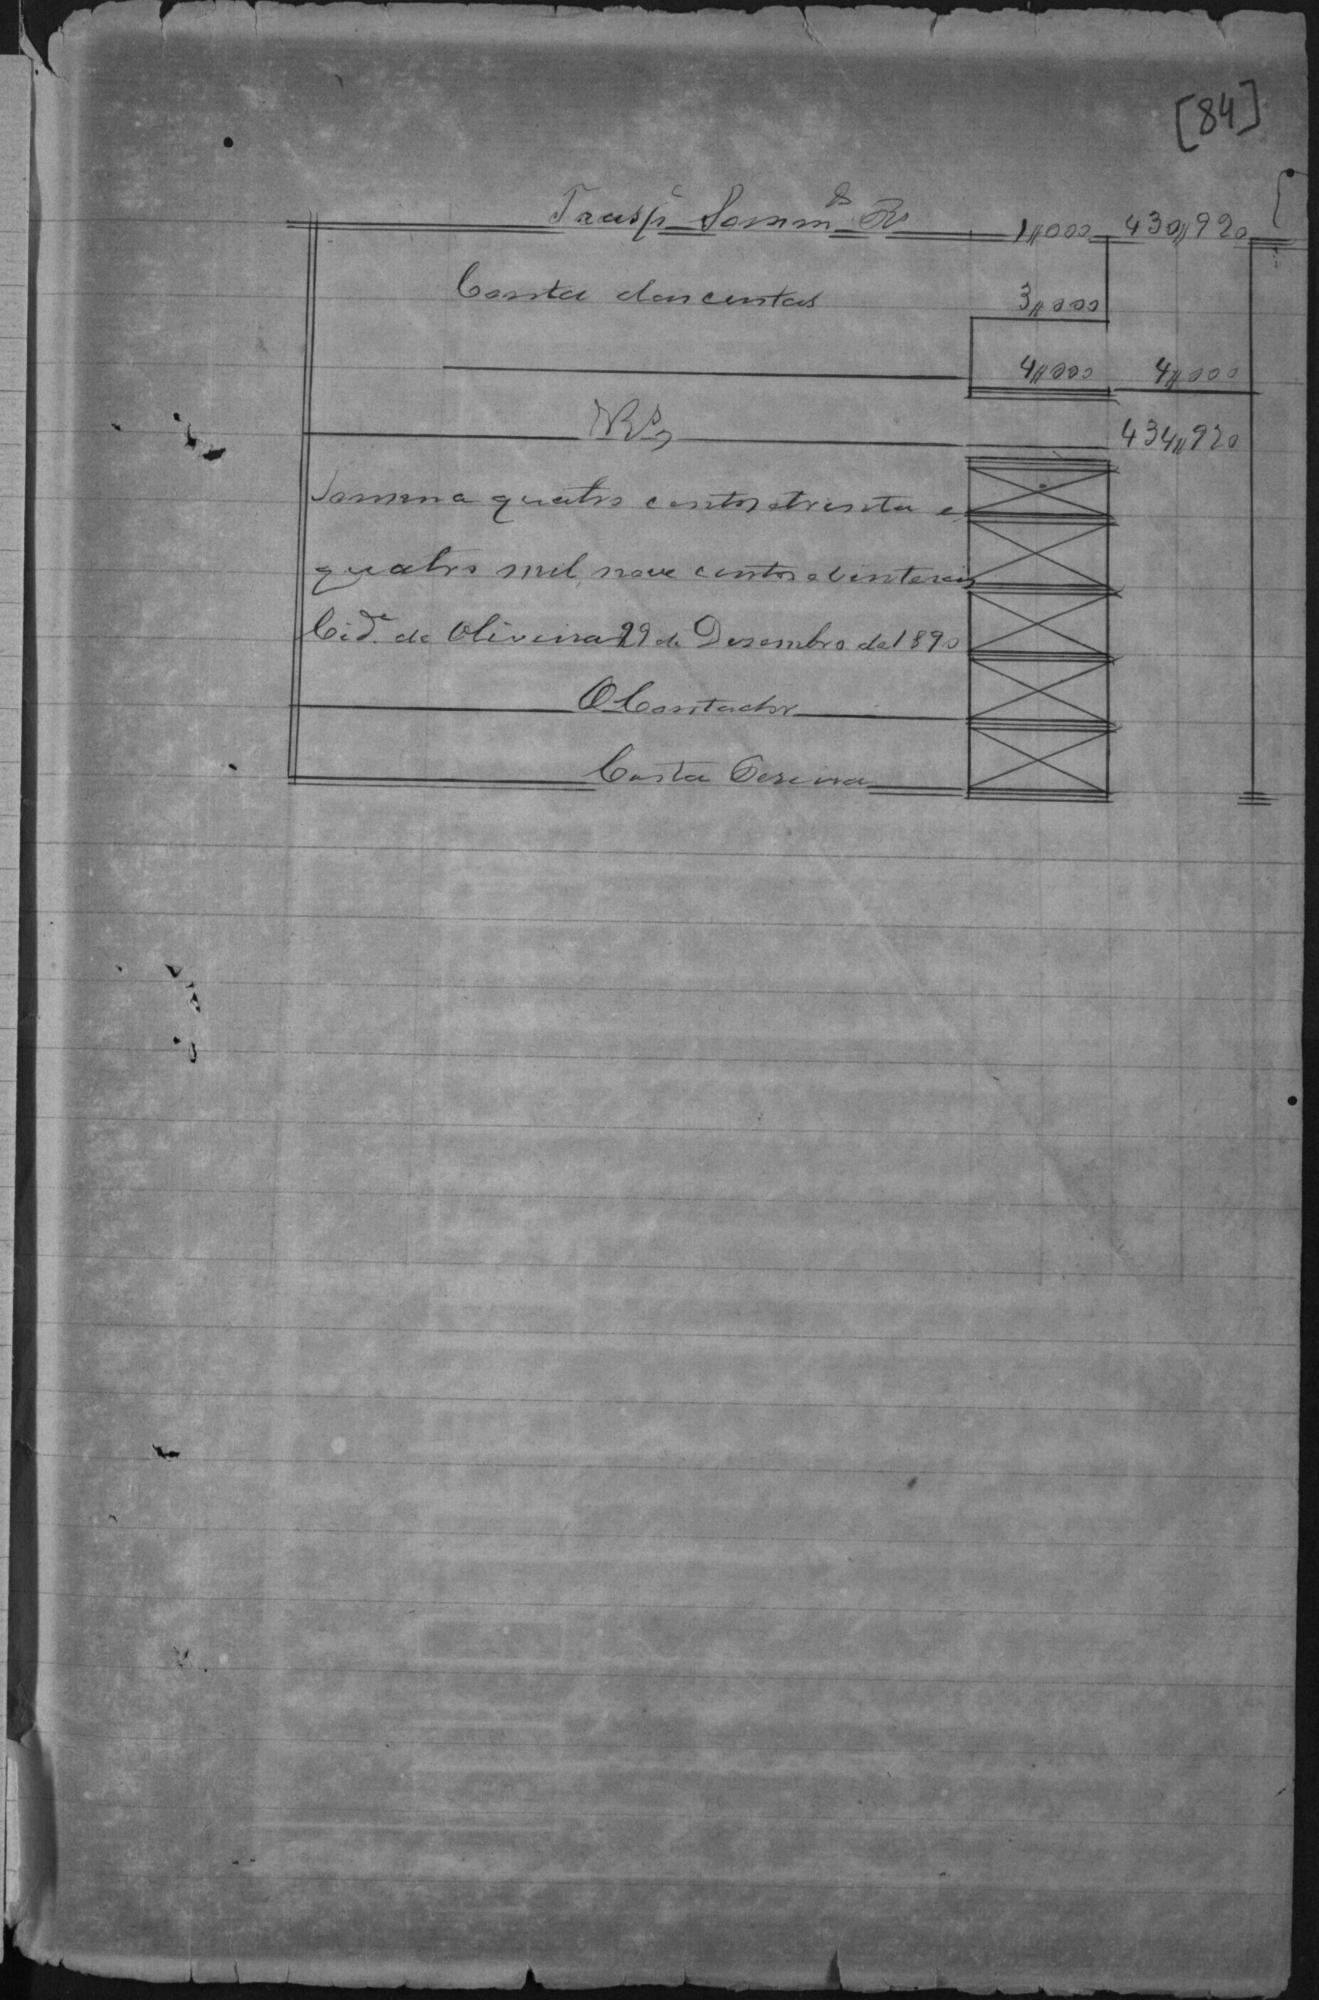 [84]
Transp. Somm.as Rs 1,,000 430,,920
Conta dascustas 3,,000
4,,000 4,,000
Rs, 434,,920
Somma quatro centos etrinta e
quatro mil, nove centos evintereis
Cid.e de Oliveira 29 de Desembro de 1890
O Contador
Costa Pereira